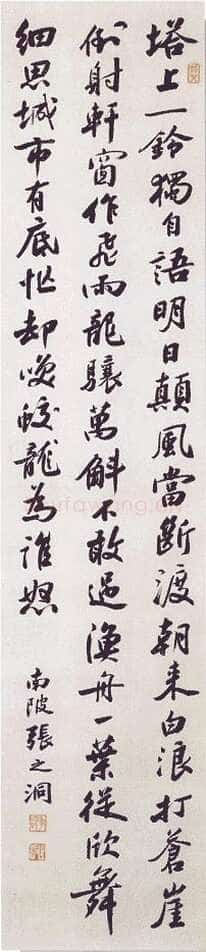 塔上一鈴獨自語明日顛風當斷渡朝來白浪打蒼崖
倒射軒窗作飛雨龍驤萬斛不敢過漁舟一葉從掀舞
細思城市有底忙却笑蛟龍為誰怒
南陂張之洞